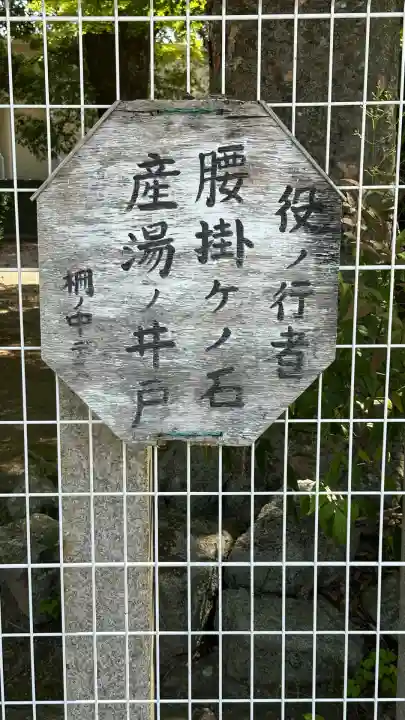 役ノ行者
腰掛ケノ石
産湯ノ井戸
柵ノ中デ